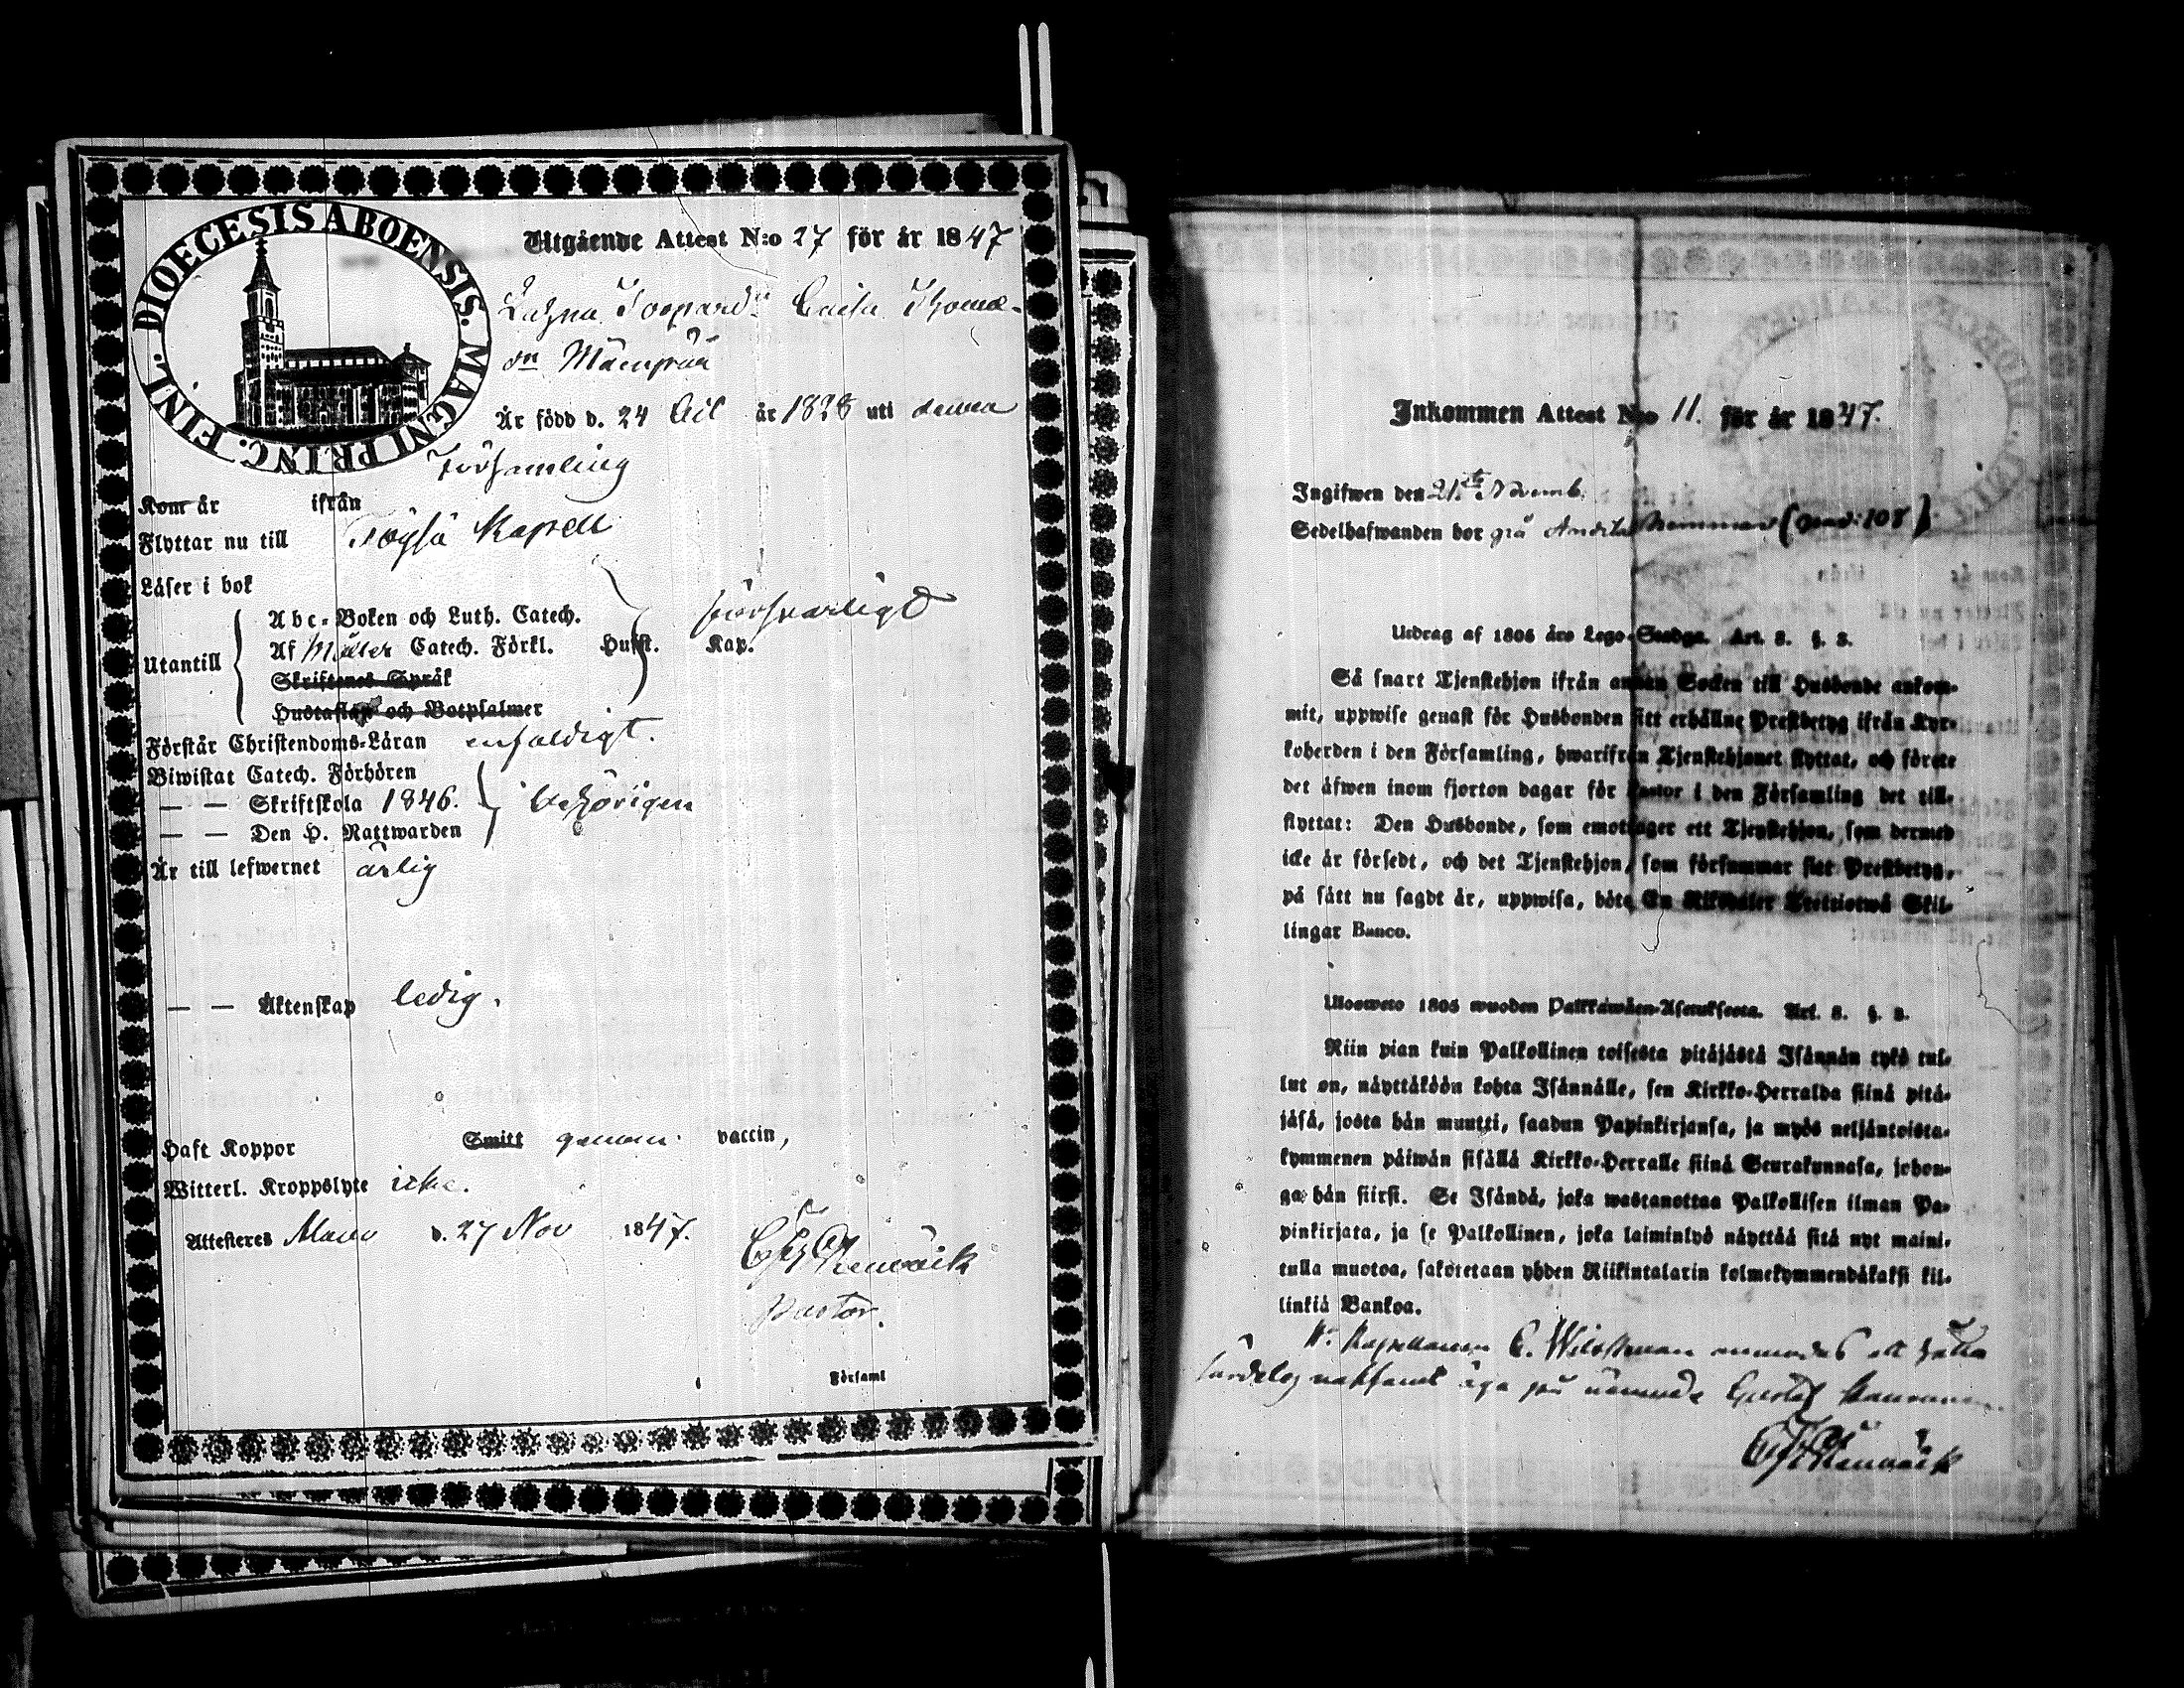 DIOECESIS ABOENSIS. MAGNI PRINC. FINL.
Utgående Attest N:o 27 för år 1847
Caisa Thomæ-
dr
Är född d. 24 år 1828 uti denna
Församling
Kom år ifrån
Flyttar nu till Töysä Kapell
Läser i bok
Abc-Boken och Luth. Catech.
försvarligt
Utantill
Af Möller Catech. Förkl. Hufst. Kap.
Skriftenes Språk
Hustaflan och Botpsalmer
Förstår Christendoms-Läran enfaldigt.
Biwistat Catech. Förhören
— — Skriftskola 1846. behörigen
— — Den H. Nattwarden
Är till lefwernet ärlig
— — Äktenskap ledig.
Haft Koppor Smitt genom vaccin,
Witterl. Kroppslyte icke.
Attesteras Alavo d. 27 Nov 1847.
Pastor.
Församl
Inkommen Attest N:o 11. för år 1847.
Ingifwen den 21 Novemb.
Sedelhafwanden bor på (pag: 108)
Utdrag af 1805 års Lego-Stadga. Art. 3. §. 3.
Så snart Tjenstehjon ifrån annan Socken till Husbonde ankom-
mit, uppwise genast för Husbonden sitt erhållne Prestbetyg ifrån Kyr-
koherden i den Församling, hwarifrån Tjenstehjonet flyttat, och förete
det äfwen inom fjorton dagar för Pastor i den Församling det till-
flyttat: Den Husbonde, som emottager ett Tjenstehjon, som dermed
icke är försedt, och det Tjenstehjon, som försummar sitt Prestbetyg,
på sätt nu sagdt är, uppwisa, böte En Riksdaler Trettiotwå Skil-
lingar Banco.
Ulosweto 1805 wuoden Palkkawäen-Asetuksesta. Art. 3. §. 3.
Niin pian kuin Palkollinen toisesta pitäjästä Isännän tykö tul-
lut on, näyttäköön kohta Isännälle, sen Kirkko-Herralda siinä pitä-
jäsä, josta hän muutti, saadun Papinkirjansa, ja myös neljäntoista-
kymmenen päiwän sisällä Kirkko-Herralle siinä Seurakunnasa, johon-
ga hän siirsi. Se Isändä, joka wastanottaa Palkollisen ilman Pa-
pinkirjata, ja se Palkollinen, joka laiminlyö näyttää sitä nyt maini-
tulla muotoa, sakotetaan yhden Riikintalarin kolmekymmendäkaksi kil-
linkiä Bankoa.
att hålla
nämnde Gustaf